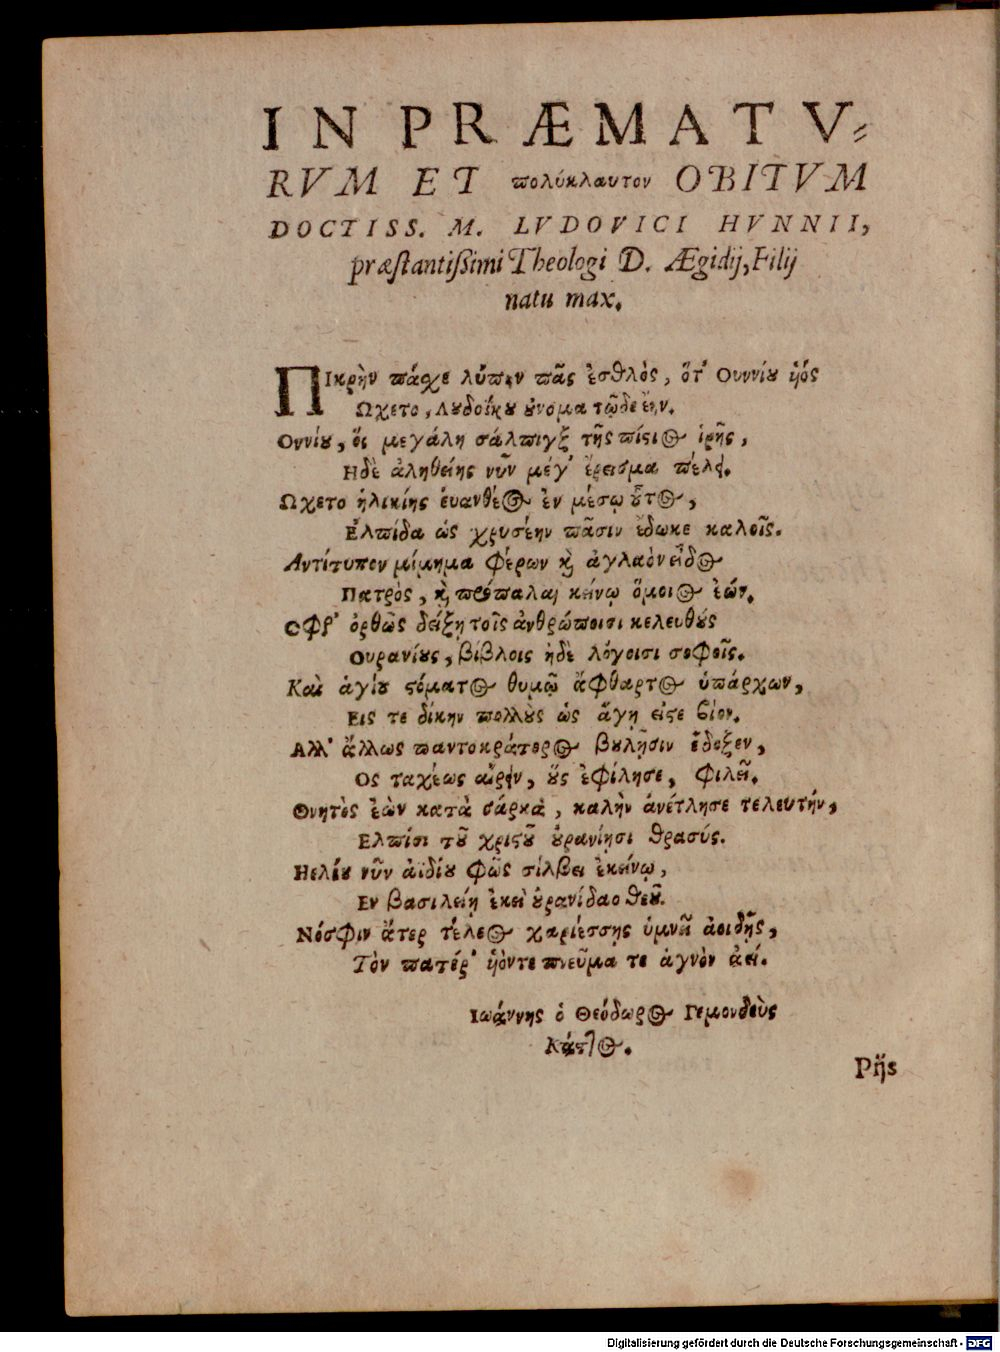 IN PRÆMATV⸗
RVM ET πολύκλαυτον OBITVM
DOCTISS. M. LVDOVICI HVNNII,
præstantißimi Theologi D. Ægidij, Filij
natu max.
ΠΙκρὴν πάχε λύπην πᾶς ἐσθλὸς, ὅτ' Ουννίου ὑός
Ωχετο, Λυδοίκου οὔνομα τῷδε ἔην.
Ουννίου, ὅς μεγάλη σάλπιγξ τῆς πίστιος ἱρῆς,
Ηδὲ ἀληθείης νῦν μέγ' ἔρεισμα πέλει.
Ωχετο ἡλικίης ἐυανθέος ἐν μέσῳ οὗτος,
Ελπίδα ὡς χρυσέην πᾶσιν ἔδωκε καλοῖς.
Αντίτυπον μίμημα φέρων καὶ ἀγλαὸν εἶδος
Πατρὸς, καὶ πρόπαλαι κείνῳ ὅμοιος ἐών.
Οφρ' ὀρθῶς δείξῃ τοῖς ἀνθρώποισι κελευθούς
Ουρανίους, βίβλοις ἠδὲ λόγοισι σοφοῖς.
Καὶ ἁγίου στόματος θυμῷ ἄφθαρτος ὑπάρχων,
Εις τε δίκην πολλοὺς ὡς ἄγῃ εἴς τε βίον.
Αλλ' ἄλλως παντοκράτορος βουλῇσιν ἔδοξεν,
Ος ταχέως αἴρειν, οὕς ἐφίλησε, φιλεῖ.
Θνητὸς ἐὼν κατὰ σάρκα, καλὴν ἀνέτλησε τελευτήν,
Ελπίσι τοῦ χριστοῦ οὐρανίῃσι θρασύς.
Ηελίου νῦν ἀϊδίου φῶς στίλβει ἐκείνῳ,
Εν βασιλείῃ ἐκεῖ οὐρανίδαο θεοῦ.
Νόσφιν ἄτερ τέλεος χαριέσσης ὑμνεῖ ἀοιδῆς,
Τὸν πατέρ' ὑόν τε πνεῦμα τε ἁγνὸν ἀεί.
Ιωάννης ὁ Θεόδωρος Γεμονδεὺς
Piis
Digitalisierung gefördert durch die Deutsche Forschungsgemeinschaft - DFG